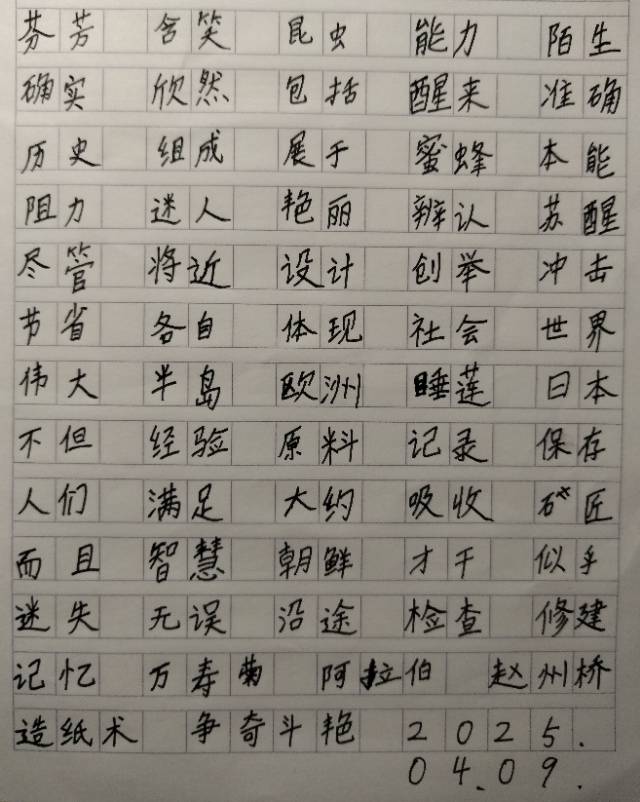 芬芳 含笑 昆虫 能力 陌生
确实 欣然 包括 醒来 准确
历史 组成 展于 蜜蜂 本能
阻力 迷人 艳丽 辨认 苏醒
尽管 将近 设计 创举 冲击
节省 各自 体现 社会 世界
伟大 半岛 欧洲 睡莲 日本
不但 经验 原料 记录 保存
人们 满足 大约 吸收 石匠
而且 智慧 朝鲜 才干 似乎
迷失 无误 沿途 检查 修建
记忆 万寿菊 阿拉伯 赵州桥
造纸术 争奇斗艳 2025.
04.09.